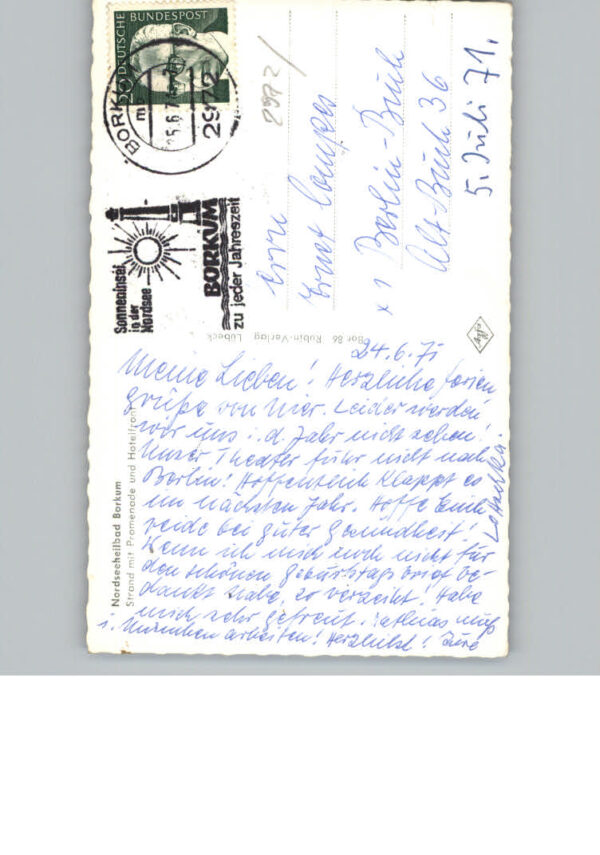 20 DEUTSCHE BUNDESPOST
BORKUM
25.6.71
2972
Sonneninsel
in der
Nordsee
BORKUM
zu jeder Jahreszeit
2972/
Ernst
x 1 Berlin-Buch
Alt-Buch 36
5. Juli 71.
Bor 86 Rubin-Verlag Lübeck
Nordseeheilbad Borkum
Strand mit Promenade und Hotelfront
24.6.71
Meine Lieben! Herzliche Ferien
grüße von hier. Leider werden
wir uns i.d. Jahr nicht sehen!
Unser Theater fuhr nicht nach
Berlin! Hoffentlich klappt es
im nächsten Jahr. Hoffe Euch
beide bei guter Gesundheit!
Wenn ich mich noch nicht für
den schönen Geburtstagsbrief be-
dankt habe, so verzeiht! Habe
mich sehr gefreut. muß
i. München arbeiten! Herzlichst! Eure